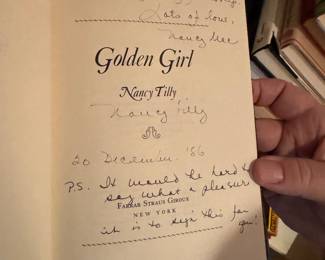 Lots of love,
Nancy Mac
Golden Girl
Nancy Tilly
Nancy Tilly
20 December '86
P.S. It would be hard to
say what a pleasure
FARRAR STRAUS GIROUX
NEW YORK
it is to sign this for
you!